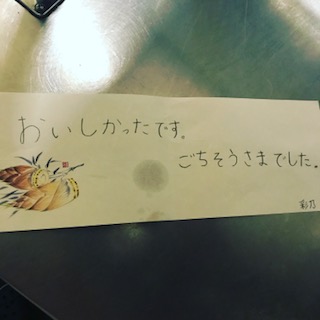 おいしかったです。
ごちそうさまでした。
彩乃